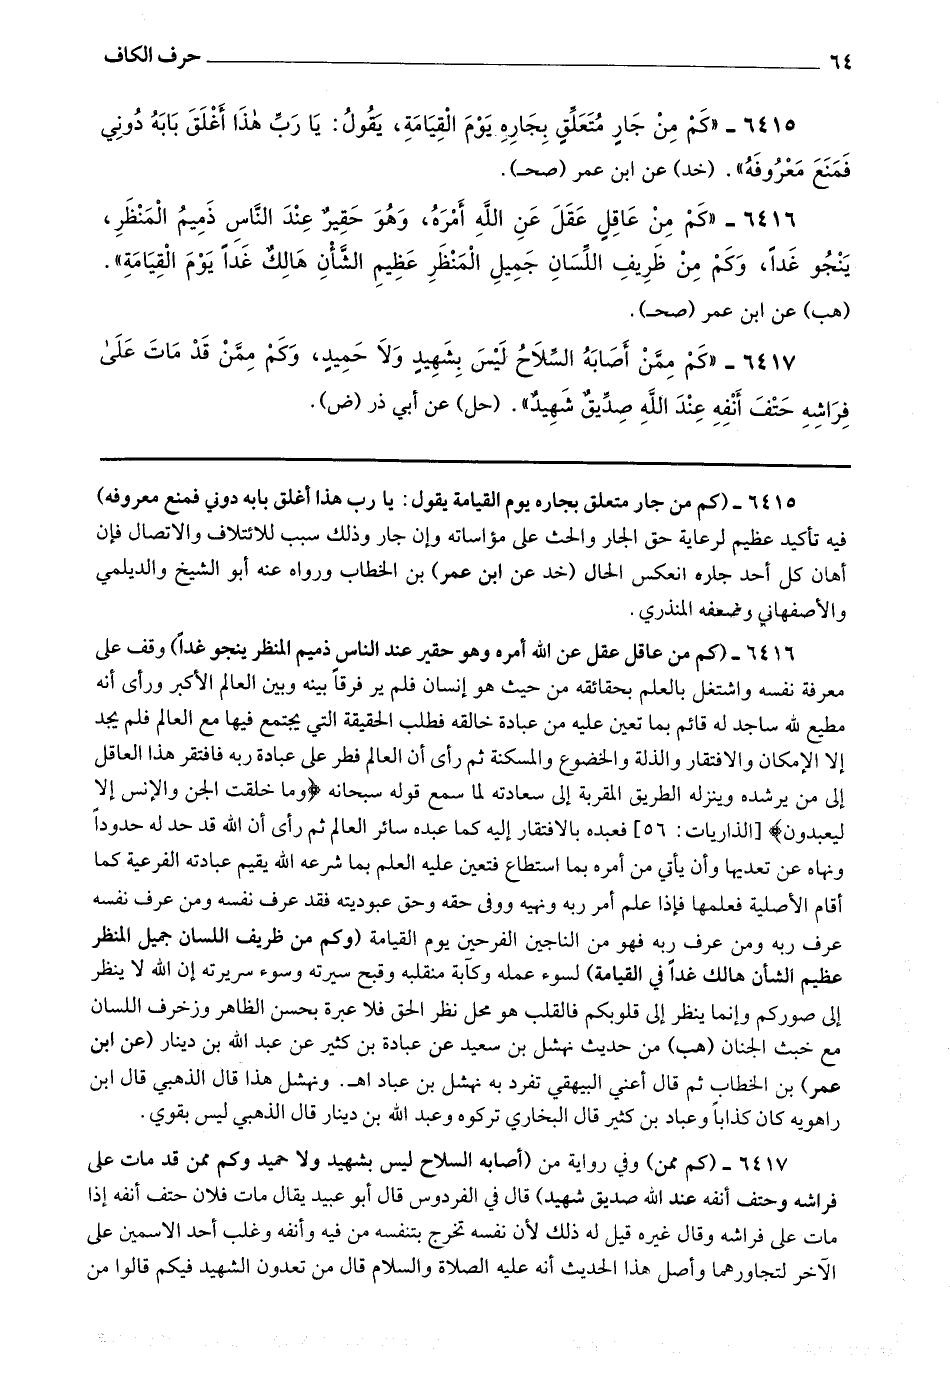 ٦٤ حرف الكاف
٦٤١٥ ـ «كَمْ مِنْ جَارٍ مُتَعَلِّقٍ بِجَارِهِ يَوْمَ الْقِيَامَةِ، يَقُولُ: يَا رَبِّ هٰذَا أَغْلَقَ بَابَهُ دُونِي
فَمَنَعَ مَعْرُوفَهُ». (خد) عن ابن عمر (صحـ).
٦٤١٦ ـ «كَمْ مِنْ عَاقِلٍ عَقَلَ عَنِ اللَّهِ أَمْرَهُ، وَهُوَ حَقِيرٌ عِنْدَ النَّاسِ ذَمِيمُ الْمَنْظَرِ،
يَنْجُو غَداً، وَكَمْ مِنْ ظَرِيفِ اللِّسَانِ جَمِيلِ الْمَنْظَرِ عَظِيمِ الشَّأْنِ هَالِكٌ غَداً يَوْمَ الْقِيَامَةِ».
(هب) عن ابن عمر (صحـ).
٦٤١٧ ـ «كَمْ مِمَّنْ أَصَابَهُ السِّلَاحُ لَيْسَ بِشَهِيدٍ وَلَا حَمِيدٍ، وَكَمْ مِمَّنْ قَدْ مَاتَ عَلَىٰ
فِرَاشِهِ حَتْفَ أَنْفِهِ عِنْدَ اللَّهِ صِدِّيقٌ شَهِيدٌ». (حل) عن أبي ذر (ض).
٦٤١٥ ـ (كم من جار متعلق بجاره يوم القيامة يقول: يا رب هذا أغلق بابه دوني فمنع معروفه)
فيه تأكيد عظيم لرعاية حق الجار والحث على مؤاساته وإن جار وذلك سبب للائتلاف والاتصال فإن
أهان كل أحد جاره انعكس الحال (خد عن ابن عمر) بن الخطاب ورواه عنه أبو الشيخ والديلمي
والأصفهاني وضعفه المنذري.
٦٤١٦ ـ (كم من عاقل عقل عن الله أمره وهو حقير عند الناس ذميم المنظر ينجو غداً) وقف على
معرفة نفسه واشتغل بالعلم بحقائقه من حيث هو إنسان فلم ير فرقاً بينه وبين العالم الأكبر ورأى أنه
مطيع لله ساجد له قائم بما تعين عليه من عبادة خالقه فطلب الحقيقة التي يجتمع فيها مع العالم فلم يجد
إلا الإمكان والافتقار والذلة والخضوع والمسكنة ثم رأى أن العالم فطر على عبادة ربه فافتقر هذا العاقل
إلى من يرشده وينزله الطريق المقربة إلى سعادته لما سمع قوله سبحانه ﴿وما خلقت الجن والإنس إلا
ليعبدون﴾ [الذاريات: ٥٦] فعبده بالافتقار إليه كما عبده سائر العالم ثم رأى أن الله قد حد له حدوداً
ونهاه عن تعديها وأن يأتي من أمره بما استطاع فتعين عليه العلم بما شرعه الله يقيم عبادته الفرعية كما
أقام الأصلية فعلمها فإذا علم أمر ربه ونهيه ووفى حقه وحق عبوديته فقد عرف نفسه ومن عرف نفسه
عرف ربه ومن عرف ربه فهو من الناجين الفرحين يوم القيامة (وكم من ظريف اللسان جميل المنظر
عظيم الشأن هالك غداً في القيامة) لسوء عمله وكآبة منقلبه وقبح سيرته وسوء سريرته إن الله لا ينظر
إلى صوركم وإنما ينظر إلى قلوبكم فالقلب هو محل نظر الحق فلا عبرة بحسن الظاهر وزخرف اللسان
مع خبث الجنان (هب) من حديث نهشل بن سعيد عن عبادة بن كثير عن عبد الله بن دينار (عن ابن
عمر) بن الخطاب ثم قال أعني البيهقي تفرد به نهشل بن عباد اهـ. ونهشل هذا قال الذهبي قال ابن
راهويه كان كذاباً وعباد بن كثير قال البخاري تركوه وعبد الله بن دينار قال الذهبي ليس بقوي.
٦٤١٧ ـ (كم ممن) وفي رواية من (أصابه السلاح ليس بشهيد ولا حميد وكم ممن قد مات على
فراشه وحتف أنفه عند الله صديق شهيد) قال في الفردوس قال أبو عبيد يقال مات فلان حتف أنفه إذا
مات على فراشه وقال غيره قيل له ذلك لأن نفسه تخرج بتنفسه من فيه وأنفه وغلب أحد الاسمين على
الآخر لتجاورهما وأصل هذا الحديث أنه عليه الصلاة والسلام قال من تعدون الشهيد فيكم قالوا من